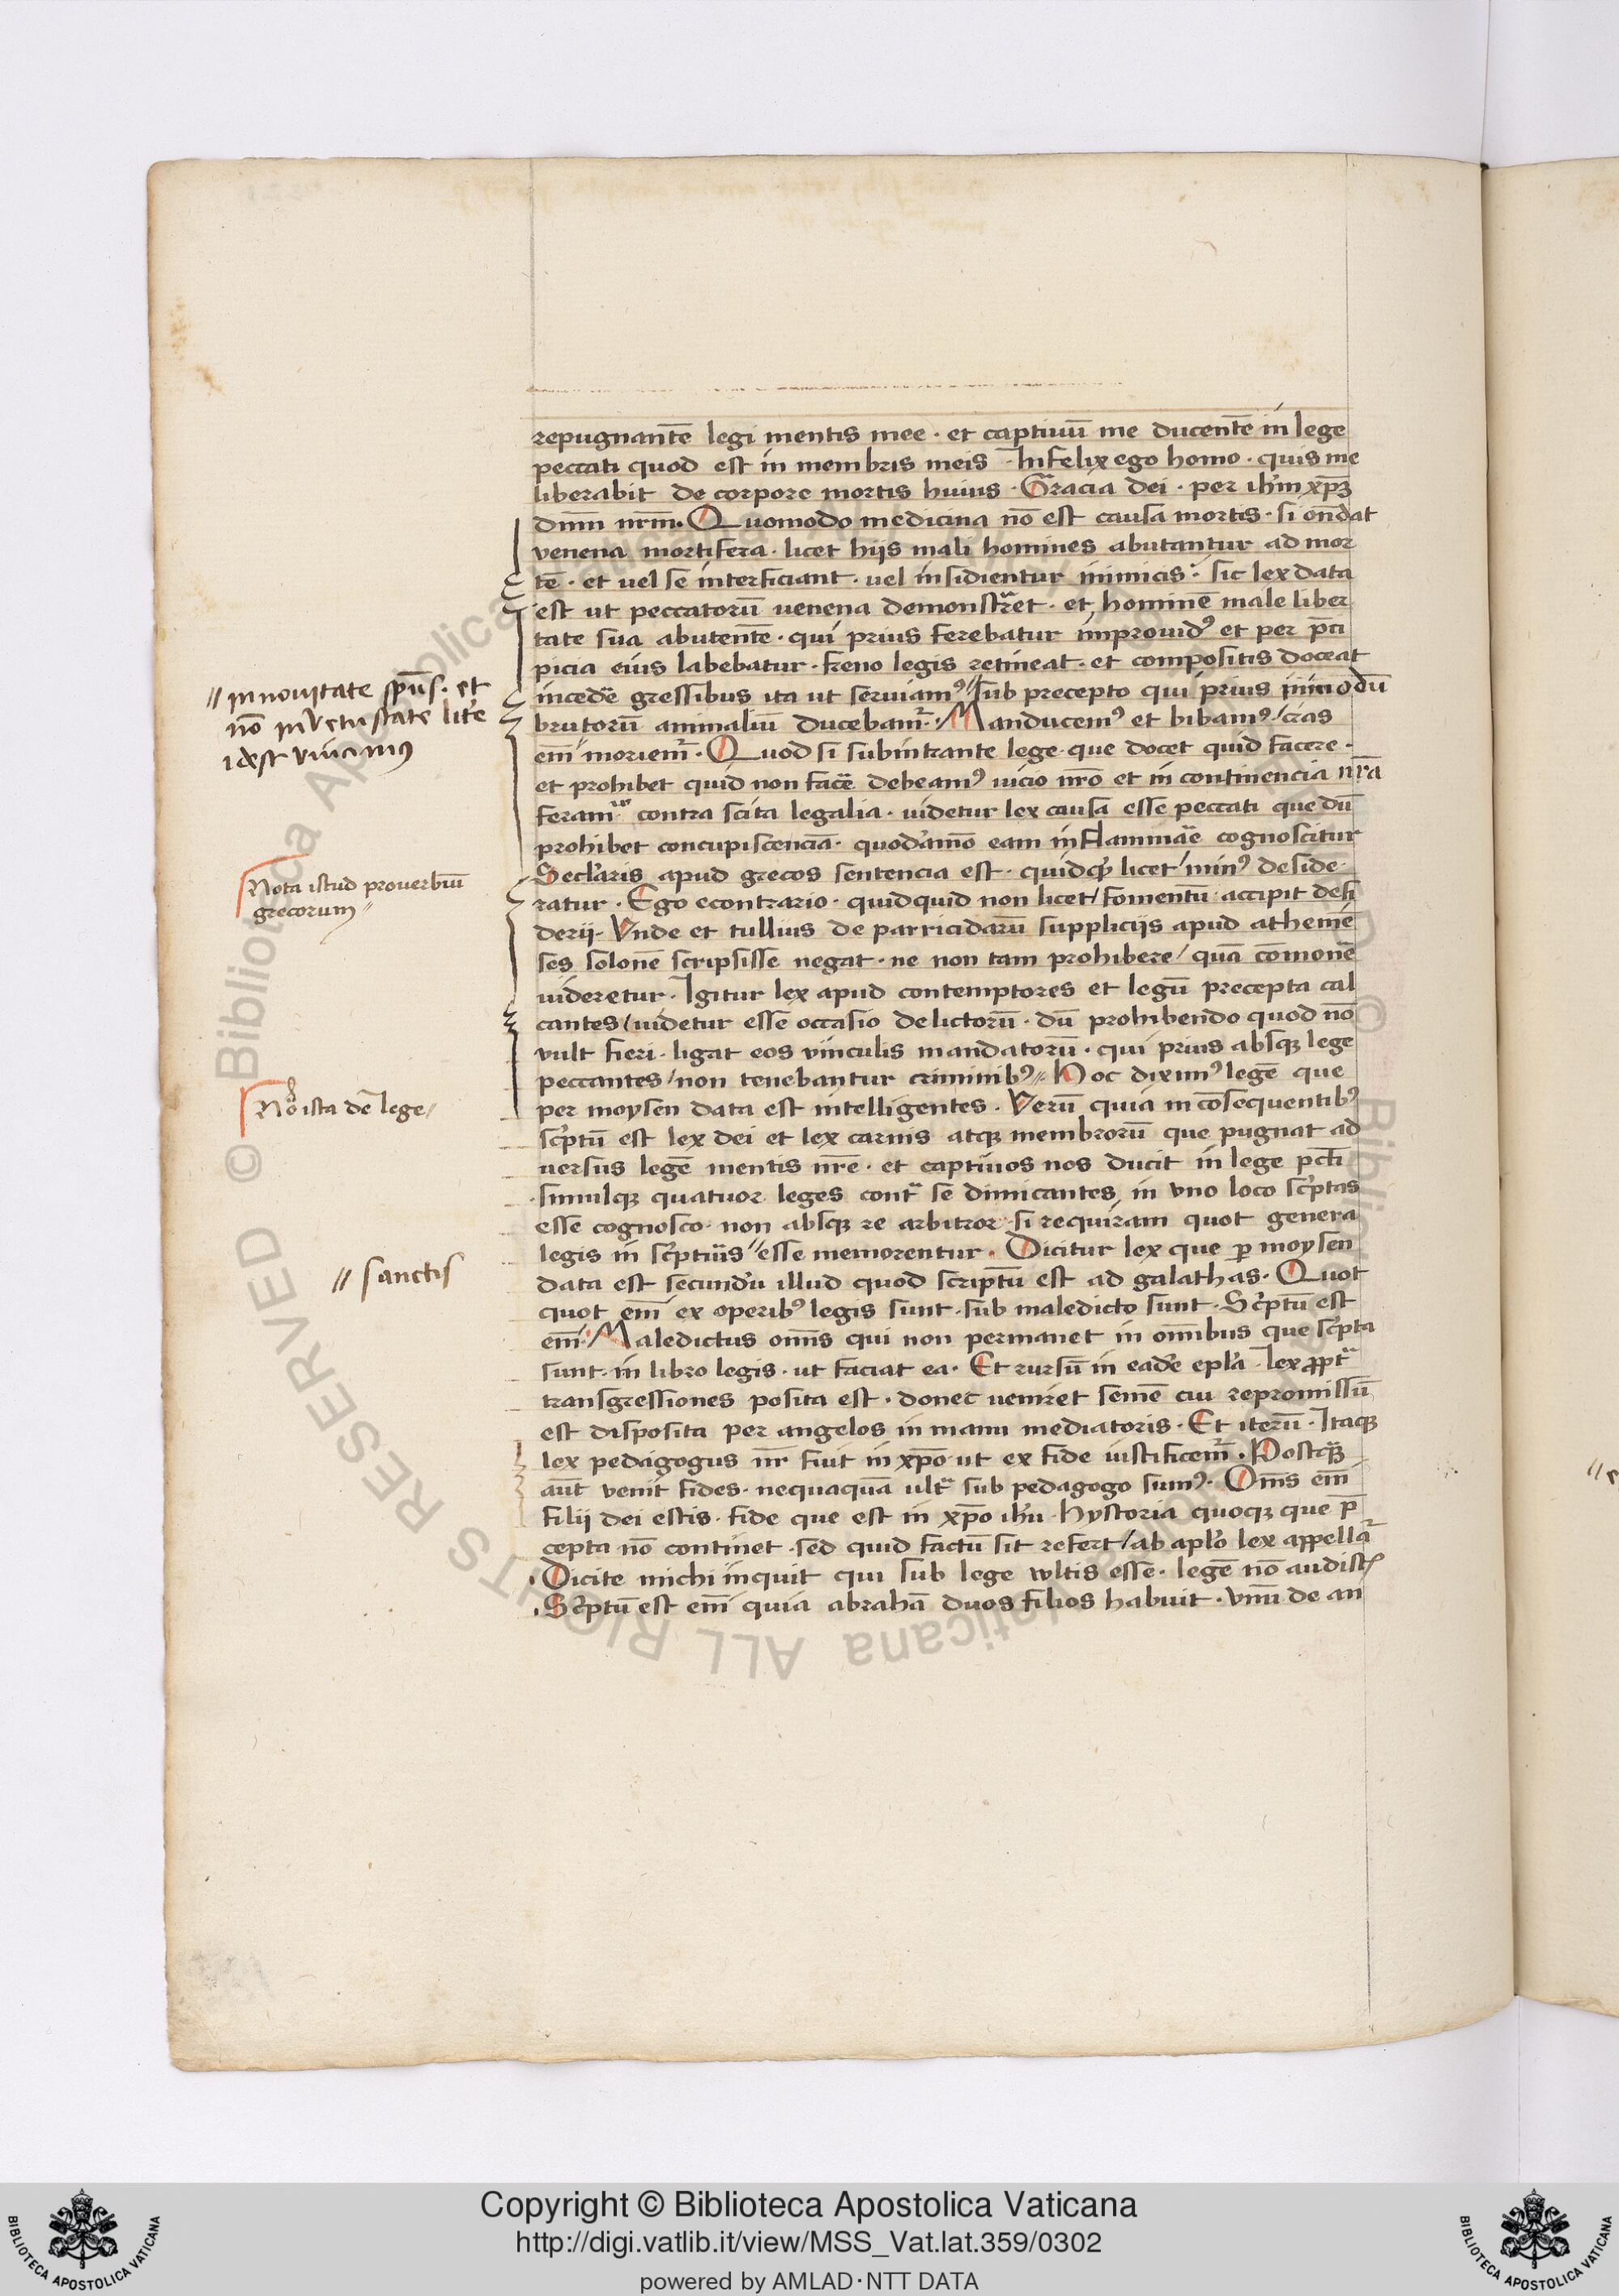 repugnantē legi mentis mee · et captiuū me ducentē in lege
peccati quod est in membris meis · Infelix ego homo · quis me
liberabit de corpore mortis huius · Gracia dei · per ihm̄ xp̄ꝫ
dnm̄ nrm̄. Quomodo medicina nō est causa mortis · si ondat
venena mortifera · licet hijs mali homines abutantur ad mor
tē · et uel se interficiant · uel insidientur inimicis · sic lex data
est ut peccatorū uenena demonstret · et hominē male liber
tate sua abutentē · qui prius ferebatur improuidꝰ et per p̄ci
picia eius labebatur · freno legis retineat · et compositis doceat
incedē gressibus ita ut seruiamꝰ // sub precepto qui prius inmodū
brutorū animaliū ducebamr̄ · Manducemꝰ et bibamꝰ / cras
em̄ moriemr̄ · Quod si subintrante lege que docet quid facere ·
et prohibet quid non facē debeamꝰ uicio nrō et in continencia nrā
feramr̄ contra scita legalia · uidetur lex causa esse peccati que dū
prohibet concupiscenciā · quodāmō eam inflammāe cognoscitur
Seclaris apud grecos sentencia est · quidqd licet / minꝰ deside
ratur · Ego econtrario · quidquid non licet / fomentū accipit desi
derij · Vnde et tullius de parricidarū supplicijs apud athenīe
ses solonē scripsisse negat · ne non tam prohibere / quā cōmonē
uideretur · Igitur lex apud contemptores et legū precepta cal
cantes / uidetur esse occasio delictorū · dū prohibendo quod nō
vult fieri · ligat eos vinculis mandatorū · qui prius absqꝫ lege
peccantes / non tenebantur criminibꝰ // Hoc diximꝰ legē que
per moysen data est intelligentes · Verū quia in cōsequentibꝰ
scͥptū est lex dei et lex carnis atqꝫ membrorū que pugnat ad
uersus legē mentis nrē · et captiuos nos ducit in lege pcti
simulqꝫ quatuor leges contͣ se dimicantes in vno loco scͥptas
esse cognosco · non absqꝫ re arbitror · si requiram quot genera
legis in scͥptuis // esse memorentur · Dicitur lex que ꝑ moysen
data est secundū illud quod scriptū est ad galathas · Quot
quot em̄ ex operibꝰ legis sunt · sub maledicto sunt · Scͥptū est
em̄ · Maledictus omīs qui non permanet in omībus que scͥpta
sunt · in libro legis · ut faciat ea · Et rursū in eadē epl̄a · lex ꝓptͣ
transgressiones posita est · donec ueniret semē cui repromissū
est disposita per angelos in manu mediatoris · Et iterū · Itaqꝫ
lex pedagogus nr̄ fuit in xpō ut ex fide iustificemr̄ · Postqꝫ
aūt venit fides · nequaquā ultͣ sub pedagogo sumꝰ · Om̄s em̄
filij dei estis · fide que est in xpō ihū · Hystoria quoqꝫ que p̄
cepta nō continet · sed quid factū sit refert / ab aplō lex appellar̄
Dicite michi inquit qui sub lege wltis esse · legē nō audistꝭ
Scͥptū est em̄ quia abrahā duos filios habuit · vnū de an
// in nouitate spūs · et
nō in vetustate litr̄e
idest viuimus
Nota istud prouerbiū
grecorum //
No ista de lege /
// sanctis
© Biblioteca Apostolica Vaticana ALL RIGHTS RESERVED
Copyright © Biblioteca Apostolica Vaticana
http://digi.vatlib.it/view/MSS_Vat.lat.359/0302
powered by AMLAD·NTT DATA
BIBLIOTECA APOSTOLICA VATICANA
BIBLIOTECA APOSTOLICA VATICANA